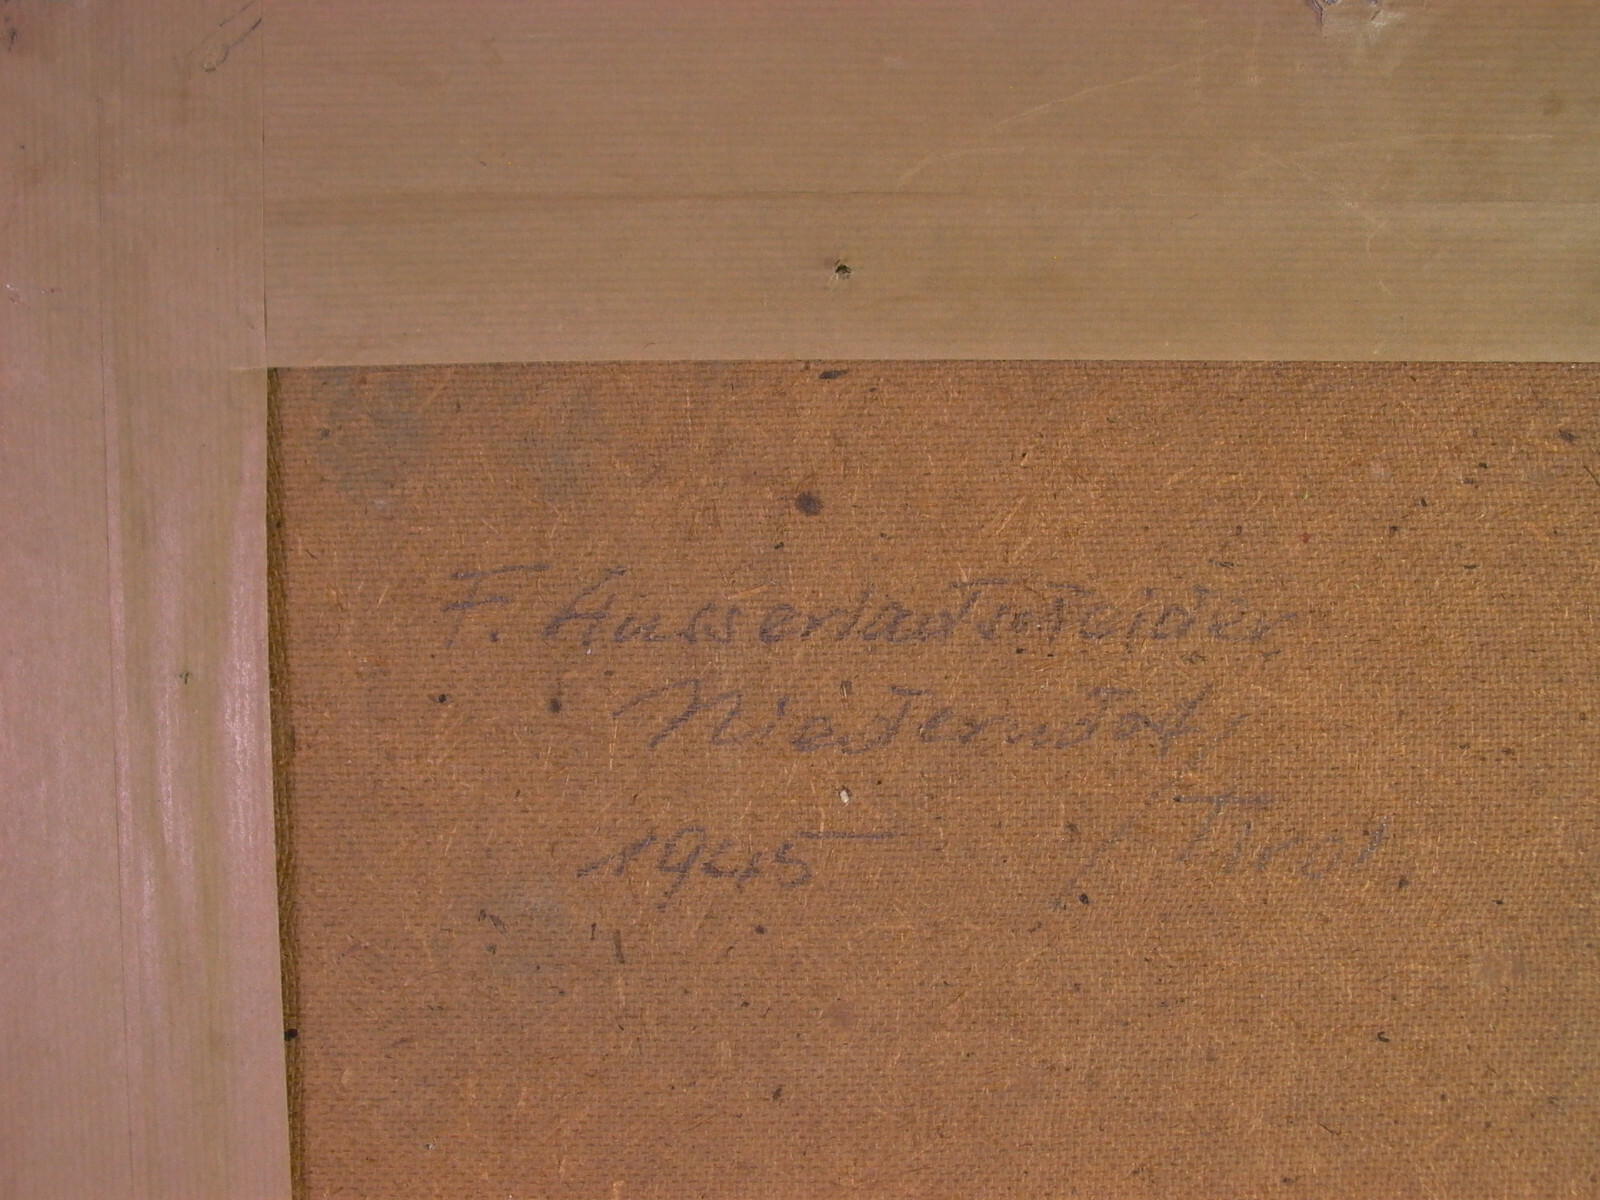 F. Ausserlandscheider
Niederndorf,
1945 / Tirol